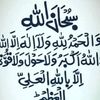 سُبْحَانَ اللّٰهِ
وَالْحَمْدُ لِلّٰهِ وَلَا إِلٰهَ إِلَّا اللّٰهُ
وَاللّٰهُ أَكْبَرُ وَلَا حَوْلَ وَلَا قُوَّةَ
إِلَّا بِاللّٰهِ الْعَلِيِّ
الْعَظِيْمِ